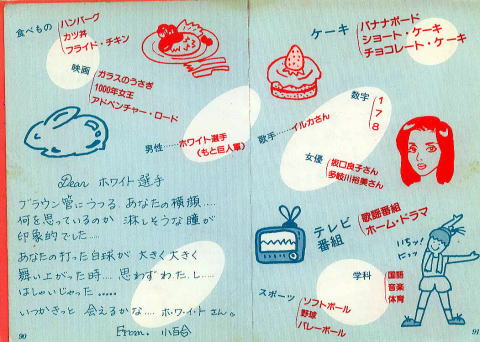 食べもの
ハンバーグ
カツ丼
フライド・チキン
映画
ガラスのうさぎ
1000年女王
アドベンチャー・ロード
男性……ホワイト選手
(もと巨人軍)
Dear ホワイト選手
ブラウン管にうつる あなたの横顔……
何を思っているのか 淋しそうな瞳が
印象的でした……
あなたの打った白球が 大きく大きく
舞い上がった時…… 思わずわたし……
はしゃいじゃった……
いつかきっと 会えるかな…… ホ・ワ・イ・ト さん。
From. 小百合
90
ケーキ
バナナボード
ショート・ケーキ
チョコレート・ケーキ
数字
1
7
8
歌手……イルカさん
女優
坂口良子さん
多岐川裕美さん
テレビ
番組
歌謡番組
ホーム・ドラマ
いちッ!
にッ
学科
国語
音楽
体育
スポーツ
ソフトボール
野球
バレーボール
91